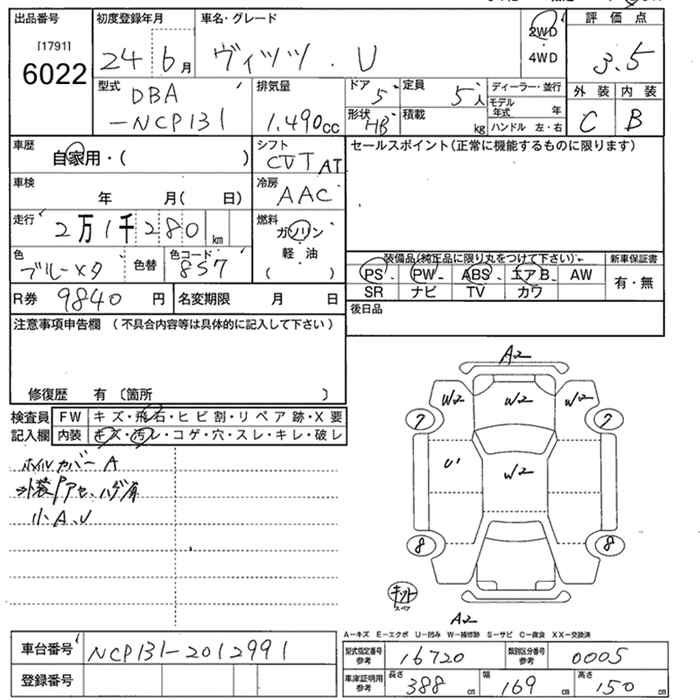 出品番号 初度登録年月 車名・グレード 評価点
[1791]
6022 24 6月 ヴィッツ . U 2WD 4WD 3.5
型式 排気量 ドア 定員 ディーラー・並行 外装 内装
DBA 5 5人 モデル年式 年
-NCP131 1.490cc 形状 HB 積載 kg ハンドル 左・右 C B
車歴 自家用・( ) シフト CVT AT セールスポイント(正常に機能するものに限ります)
車検 年 月( 日) 冷房 AAC
走行 2万1千280km 燃料 ガソリン
軽・油
( )
色 ブルーメタ 色替 色コード 857
装備品(純正品に限り丸をつけて下さい) 新車保証書
PS PW ABS エアB AW 有・無
SR ナビ TV カワ
R券 9840円 名変期限 月 日 後日品
注意事項申告欄 (不具合内容等は具体的に記入して下さい)
修復歴 有 〔箇所 〕
検査員 FW キズ・飛石・ヒビ割・リペア跡・X要
記入欄 内装 キズ・汚レ・コゲ・穴・スレ・キレ・破レ
ホイルカバーA
小A、U
A2
W2 W2 W2
7 7
U' W2
8 8
スペア
A2
A-キズ E-エクボ U-凹み W-補修跡 S-サビ C-腐食 XX-交換済
車台番号 NCP131-2012991
型式指定番号 参考 16720 類別区分番号 参考 0005
登録番号
車庫証明用 参考 長さ 388cm 幅 169cm 高さ 150cm